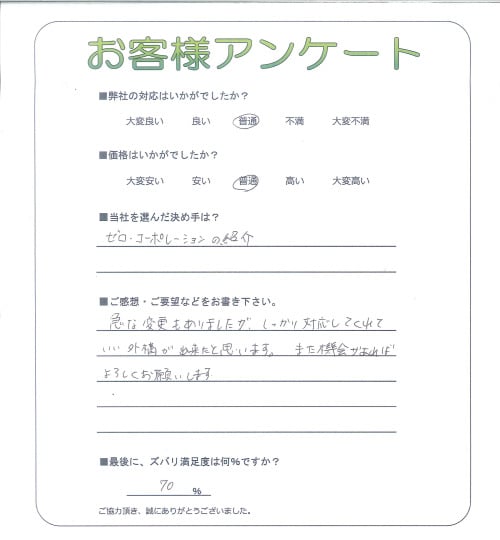 お客様アンケート
■弊社の対応はいかがでしたか？
大変良い 良い 普通 不満 大変不満
■価格はいかがでしたか？
大変安い 安い 普通 高い 大変高い
■当社を選んだ決め手は？
ゼロ・コーポレーションの紹介
■ご感想・ご要望などをお書き下さい。
急な変更もありましたが、しっかり対応してくれて
いい外構が出来たと思います。また機会があれば
よろしくお願いします
■最後に、ズバリ満足度は何％ですか？
70 ％
ご協力頂き、誠にありがとうございました。